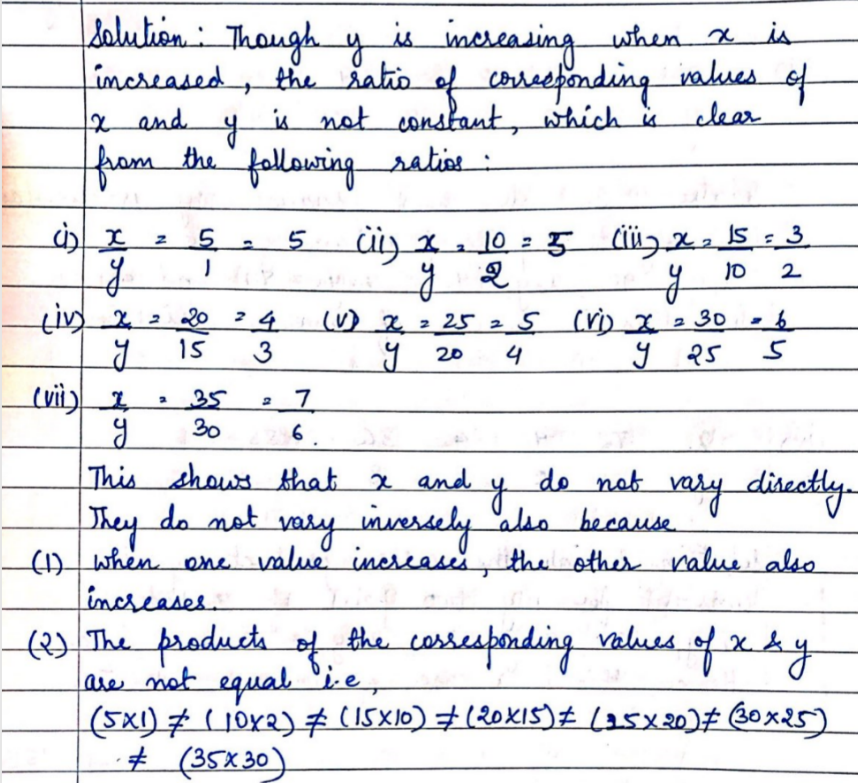 Solution : Though y is increasing when x is
increased, the ratio of corresponding values of
x and y is not constant, which is clear
from the following ratios :
(i) x/y = 5/1 = 5 (ii) x/y = 10/2 = 5 (iii) x/y = 15/10 = 3/2
(iv) x/y = 20/15 = 4/3 (v) x/y = 25/20 = 5/4 (vi) x/y = 30/25 = 6/5
(vii) x/y = 35/30 = 7/6.
This shows that x and y do not vary directly.
They do not vary inversely also because
(1) when one value increases, the other value also
increases.
(2) The products of the corresponding values of x & y
are not equal i.e,
(5x1) ≠ (10x2) ≠ (15x10) ≠ (20x15) ≠ (25x20) ≠ (30x25)
≠ (35x30)